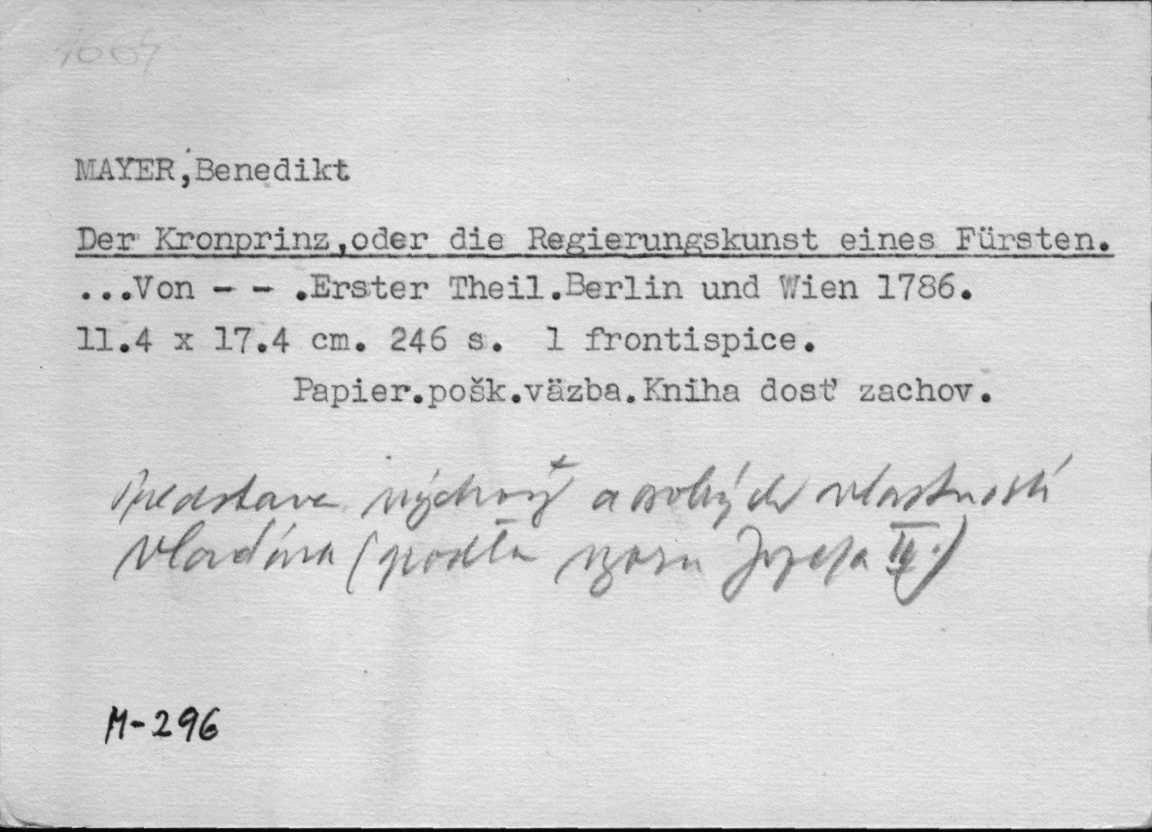 1664
MAYER,Benedikt
Der Kronprinz,oder die Regierungskunst eines Fürsten.
...Von - - .Erster Theil.Berlin und Wien 1786.
11.4 x 17.4 cm. 246 s. 1 frontispice.
Papier.pošk.väzba.Kniha dosť zachov.
Predstava výchovy a osobných vlastností
vladára (podľa vzoru Jozefa II.)
M-296